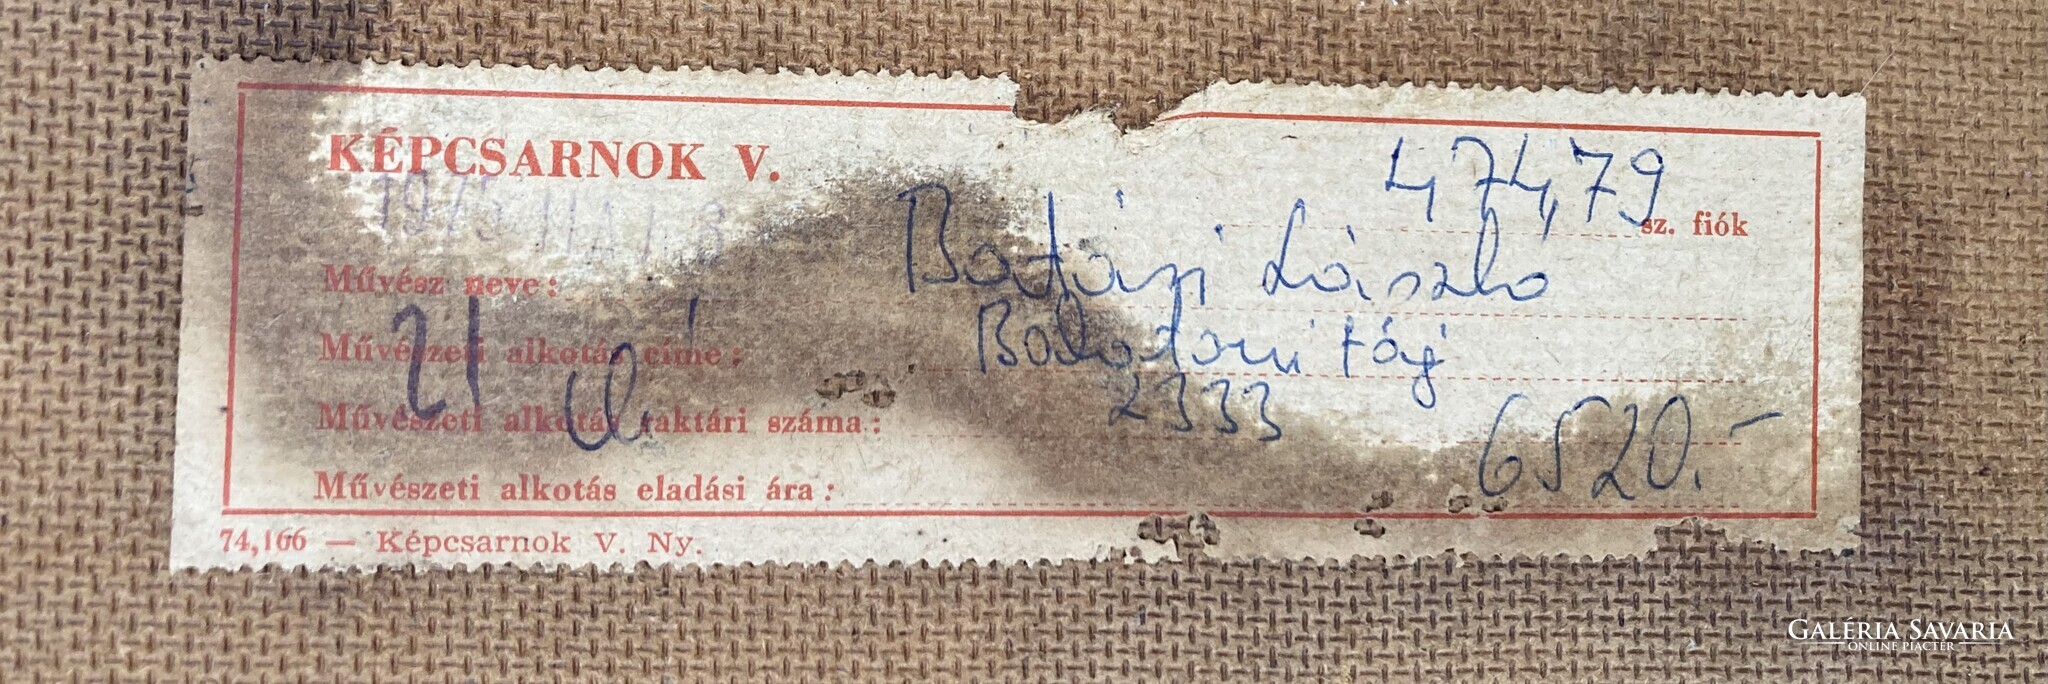 KÉPCSARNOK V.
47479
sz. fiók
Művész neve: Batári László
Művészeti alkotás címe: Balatoni táj
21
Művészeti alkotás raktári száma: 2333
Művészeti alkotás eladási ára: 6520.-
74,166 — Képcsarnok V. Ny.
GALÉRIA SAVARIA
ONLINE PIACTÉR